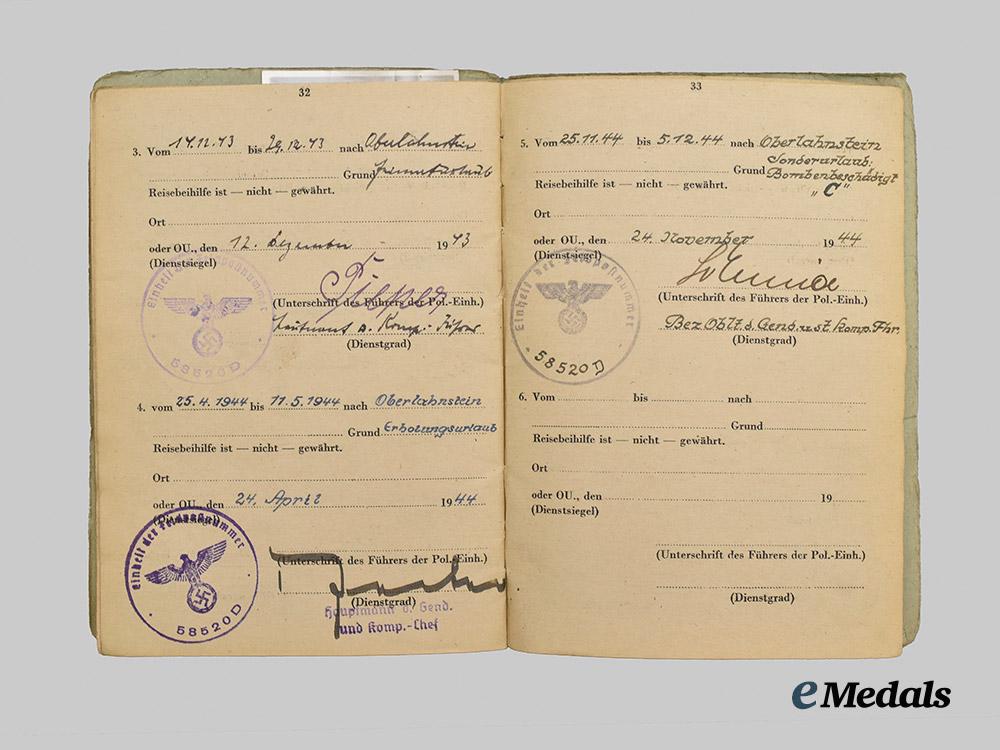 32
3. Vom 14.12.43 bis 29.12.43 nach Oberlahnstein
Grund
Reisebeihilfe ist — nicht — gewährt.
Ort
oder OU., den 12. Dezember 1943
(Dienstsiegel)
Einheit der Feldpostnummer
58520D
(Unterschrift des Führers der Pol.-Einh.)
Leutnant u. Komp.-Führer
(Dienstgrad)
4. vom 25.4.1944 bis 11.5.1944 nach Oberlahnstein
Grund Erholungsurlaub
Reisebeihilfe ist — nicht — gewährt.
Ort
oder OU., den 24. April 1944
(Dienstsiegel)
Einheit der Feldpostnummer
58520D
(Unterschrift des Führers der Pol.-Einh.)
(Dienstgrad)
Hauptmann d. Gend.
und Komp.-Chef
33
5. Vom 25.11.44 bis 5.12.44 nach Oberlahnstein
Sonderurlaub:
Grund Bombenbeschädigt
Reisebeihilfe ist — nicht — gewährt. "C"
Ort
oder OU., den 24. November 1944
(Dienstsiegel)
Einheit der Feldpostnummer
58520D
(Unterschrift des Führers der Pol.-Einh.)
Bez. Oblt. d. Gend. u. st. Komp. Fhr.
(Dienstgrad)
6. Vom bis nach
Grund
Reisebeihilfe ist — nicht — gewährt.
Ort
oder OU., den 19
(Dienstsiegel)
(Unterschrift des Führers der Pol.-Einh.)
(Dienstgrad)
eMedals